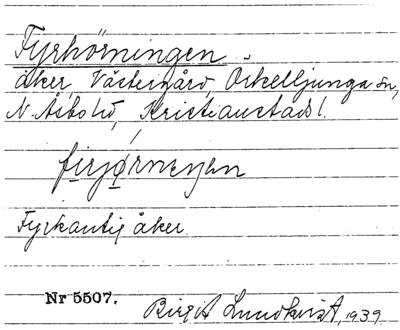 Fyrhörningen
åker, Västergård, Örkelljunga sn,
N. Åsbo hd, Kristianstads l.
firjø̱rnεŋεn
Fyrkantig åker
Nr 5507.
Birgit Lundkvist, 1939